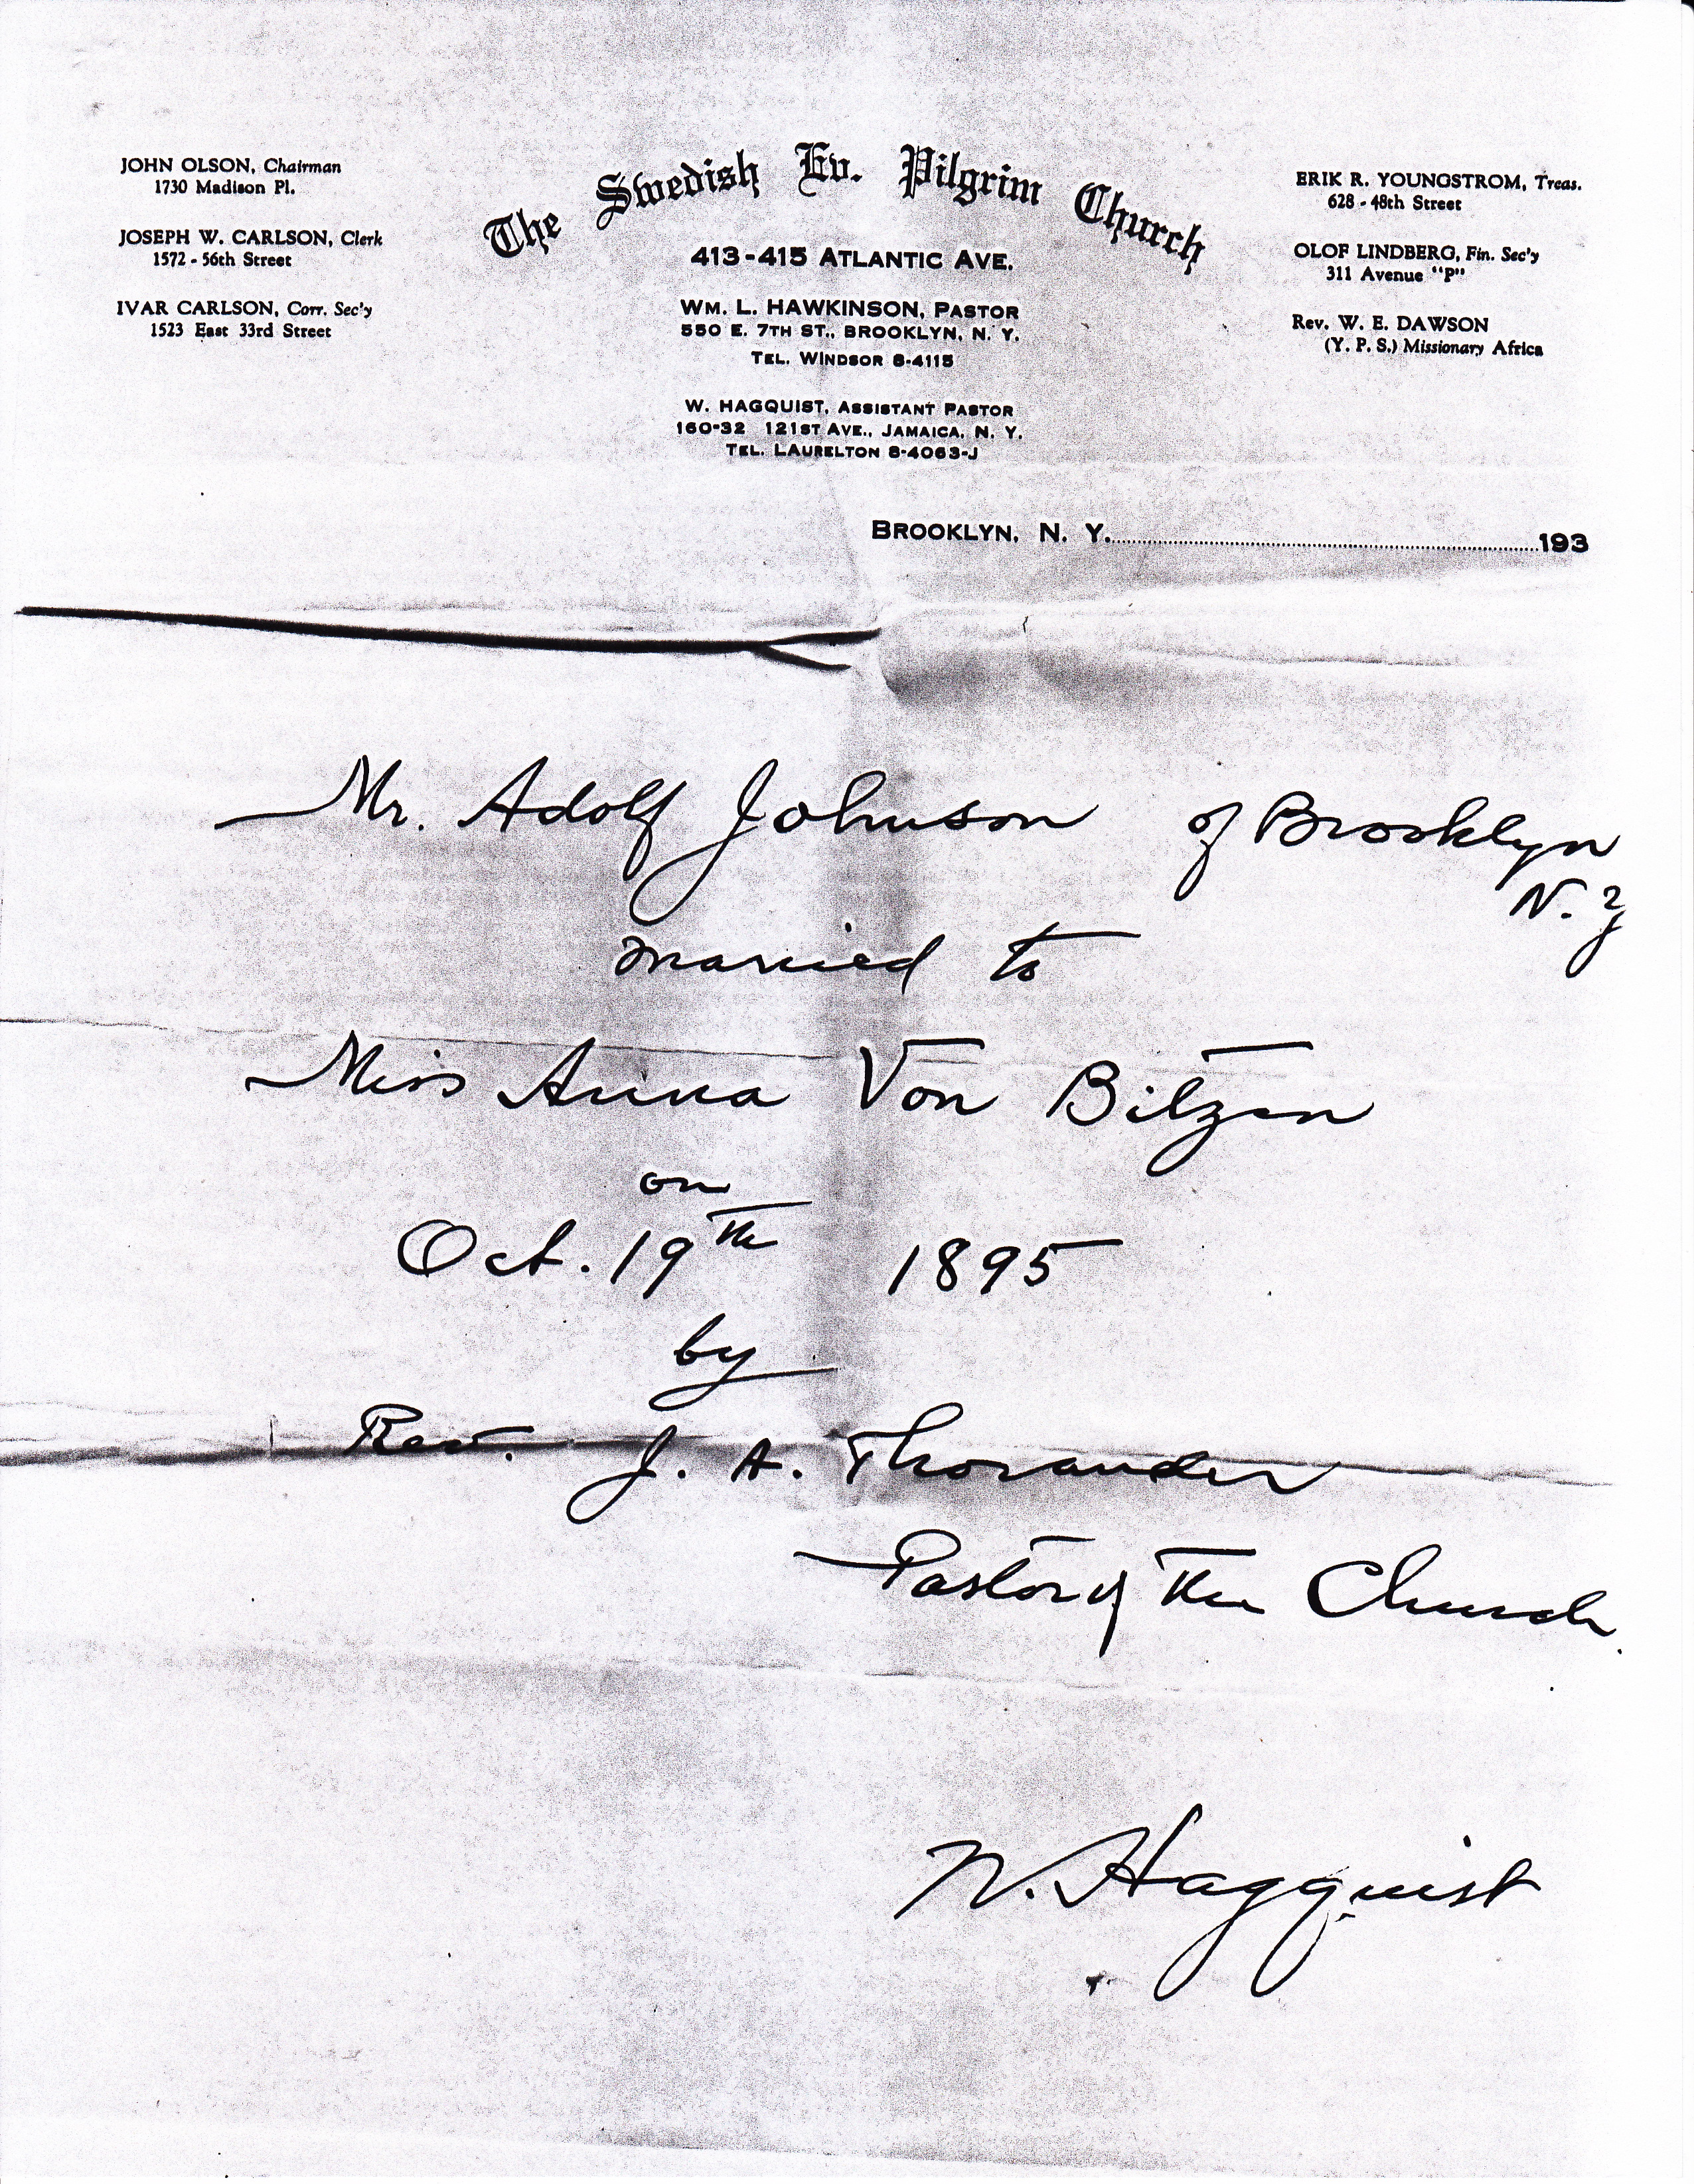 The Swedish Ev. Pilgrim Church
413-415 ATLANTIC AVE.
WM. L. HAWKINSON, PASTOR
550 E. 7TH ST., BROOKLYN, N. Y.
TEL. WINDSOR 8-4115
W. HAGQUIST, ASSISTANT PASTOR
160-32 121ST AVE., JAMAICA, N. Y.
TEL. LAURELTON 8-4063-J
JOHN OLSON, Chairman
1730 Madison Pl.
JOSEPH W. CARLSON, Clerk
1572 - 56th Street
IVAR CARLSON, Corr. Sec'y
1523 East 33rd Street
ERIK R. YOUNGSTROM, Treas.
628 - 48th Street
OLOF LINDBERG, Fin. Sec'y
311 Avenue "P"
Rev. W. E. DAWSON
(Y. P. S.) Missionary Africa
BROOKLYN, N. Y. 193
Mr. Adolf Johnson of Brooklyn
N. Y
married to
Miss Anna Von Bitzen
on
Oct. 19th 1895
by
Rev. J. A. Thorander
Pastor of the Church.
W. Hagquist